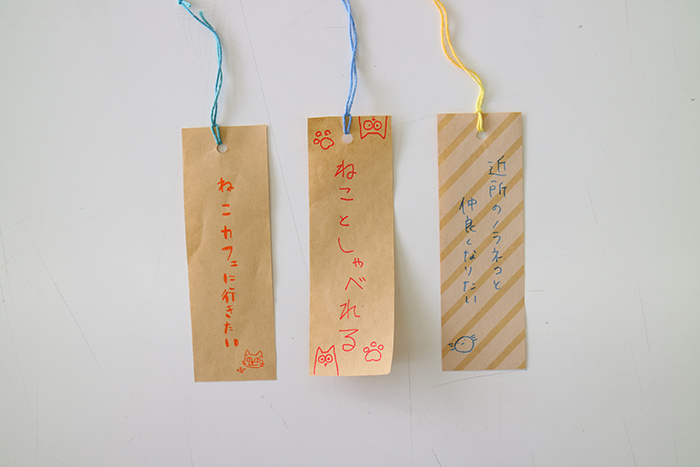 ねこカフェに行きたい
ねことしゃべれる
近所のノラネコと
仲良くなりたい